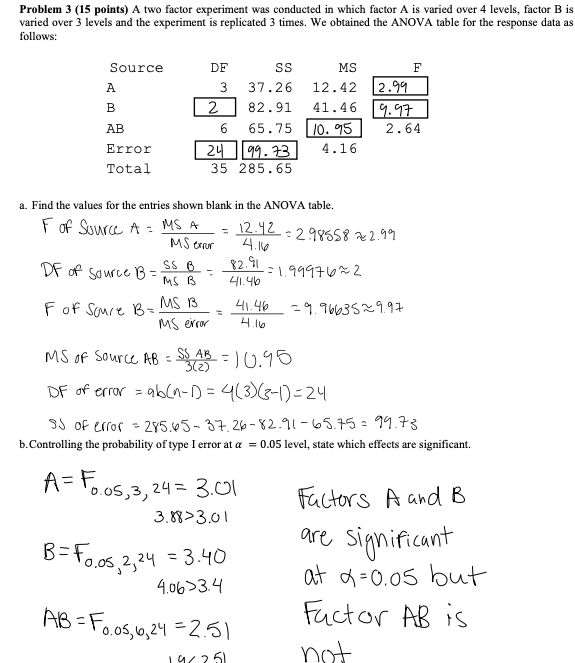 Problem 3 (15 points) A two factor experiment was conducted in which factor A is varied over 4 levels, factor B is
varied over 3 levels and the experiment is replicated 3 times. We obtained the ANOVA table for the response data as
follows:
Source DF SS MS F
A 3 37.26 12.42 2.99
B 2 82.91 41.46 9.97
AB 6 65.75 10.95 2.64
Error 24 99.73 4.16
Total 35 285.65
a. Find the values for the entries shown blank in the ANOVA table.
F of Source A = MS A / MS error = 12.42 / 4.16 = 2.98558 ≈ 2.99
DF of Source B = SS B / MS B = 82.91 / 41.46 = 1.99976 ≈ 2
F of Source B = MS B / MS error = 41.46 / 4.16 = 9.96635 ≈ 9.97
MS of Source AB = SS AB / 3(2) = 10.95
DF of error = ab(n-1) = 4(3)(3-1) = 24
SS of error = 285.65 - 37.26 - 82.91 - 65.75 = 99.73
b. Controlling the probability of type I error at α = 0.05 level, state which effects are significant.
A = F0.05,3,24 = 3.01
3.88>3.01
B = F0.05,2,24 = 3.40
4.06>3.4
AB = F0.05,6,24 = 2.51
Factors A and B
are significant
at α=0.05 but
Factor AB is
not